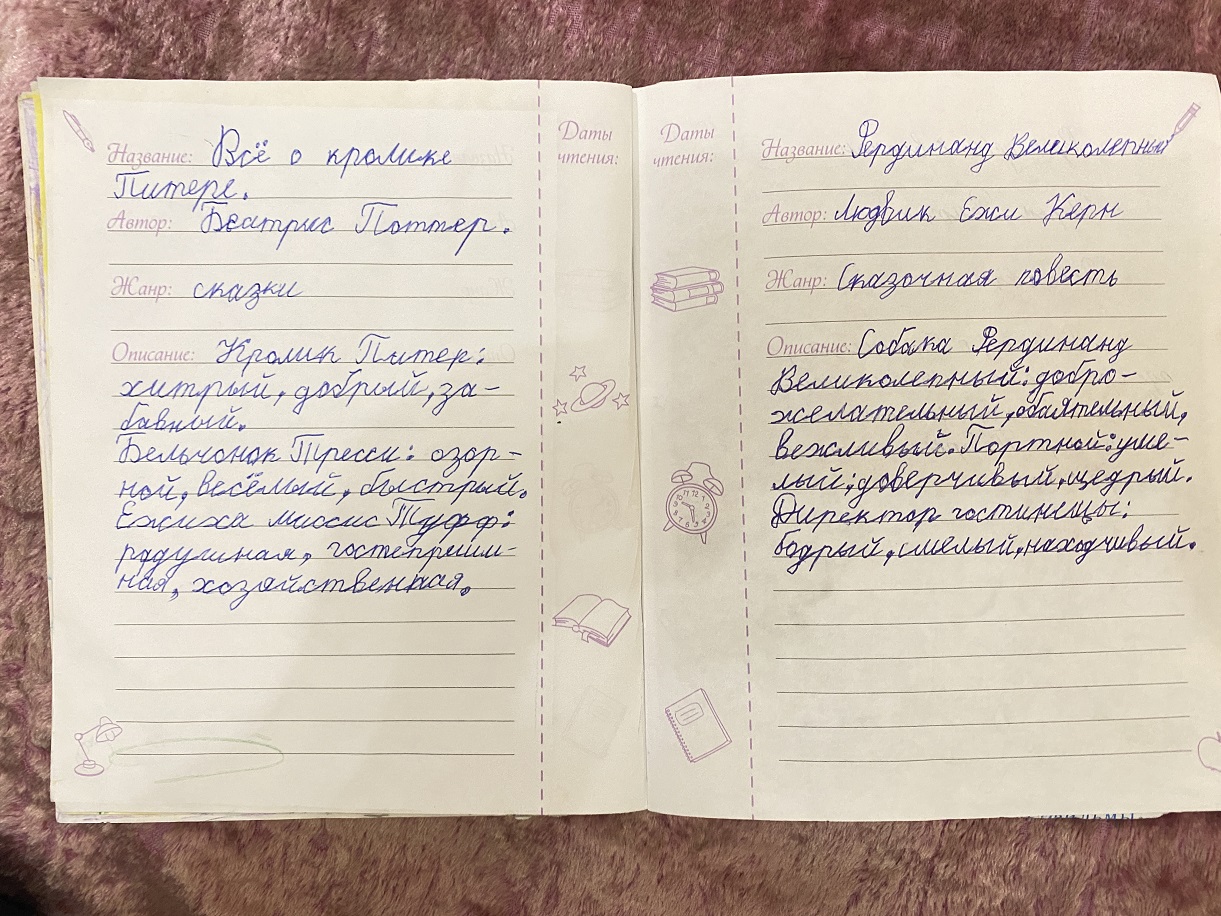 Название: Всё о кролике
Питере.
Автор: Беатрис Поттер.
Жанр: сказки
Описание: Кролик Питер:
хитрый, добрый, за-
бавный.
Бельчонок Тресси: озор-
ной, весёлый, быстрый.
Ежиха миссис Туфф:
радушная, гостеприим-
ная, хозяйственная.
Даты
чтения:
Даты
чтения:
Название: Фердинанд Великолепный
Автор: Людвик Ежи Керн
Жанр: Сказочная повесть
Описание: Собака Фердинанд
Великолепный: добро-
желательный, обаятельный,
вежливый. Портной: уме-
лый, доверчивый, щедрый.
Директор гостиницы:
бодрый, смелый, находчивый.